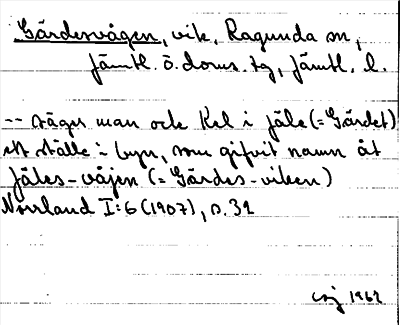 Gärdesvågen, vik, Ragunda sn,
Jämtl. ö. doms. tg, Jämtl. l.
-- säger man ock Kel i jäle (= Gärdet)
ett ställe i byn, som gifvit namn åt
Jäles-våjen (= Gärdes-viken)
Norrland I:6 (1907), s. 31
1962